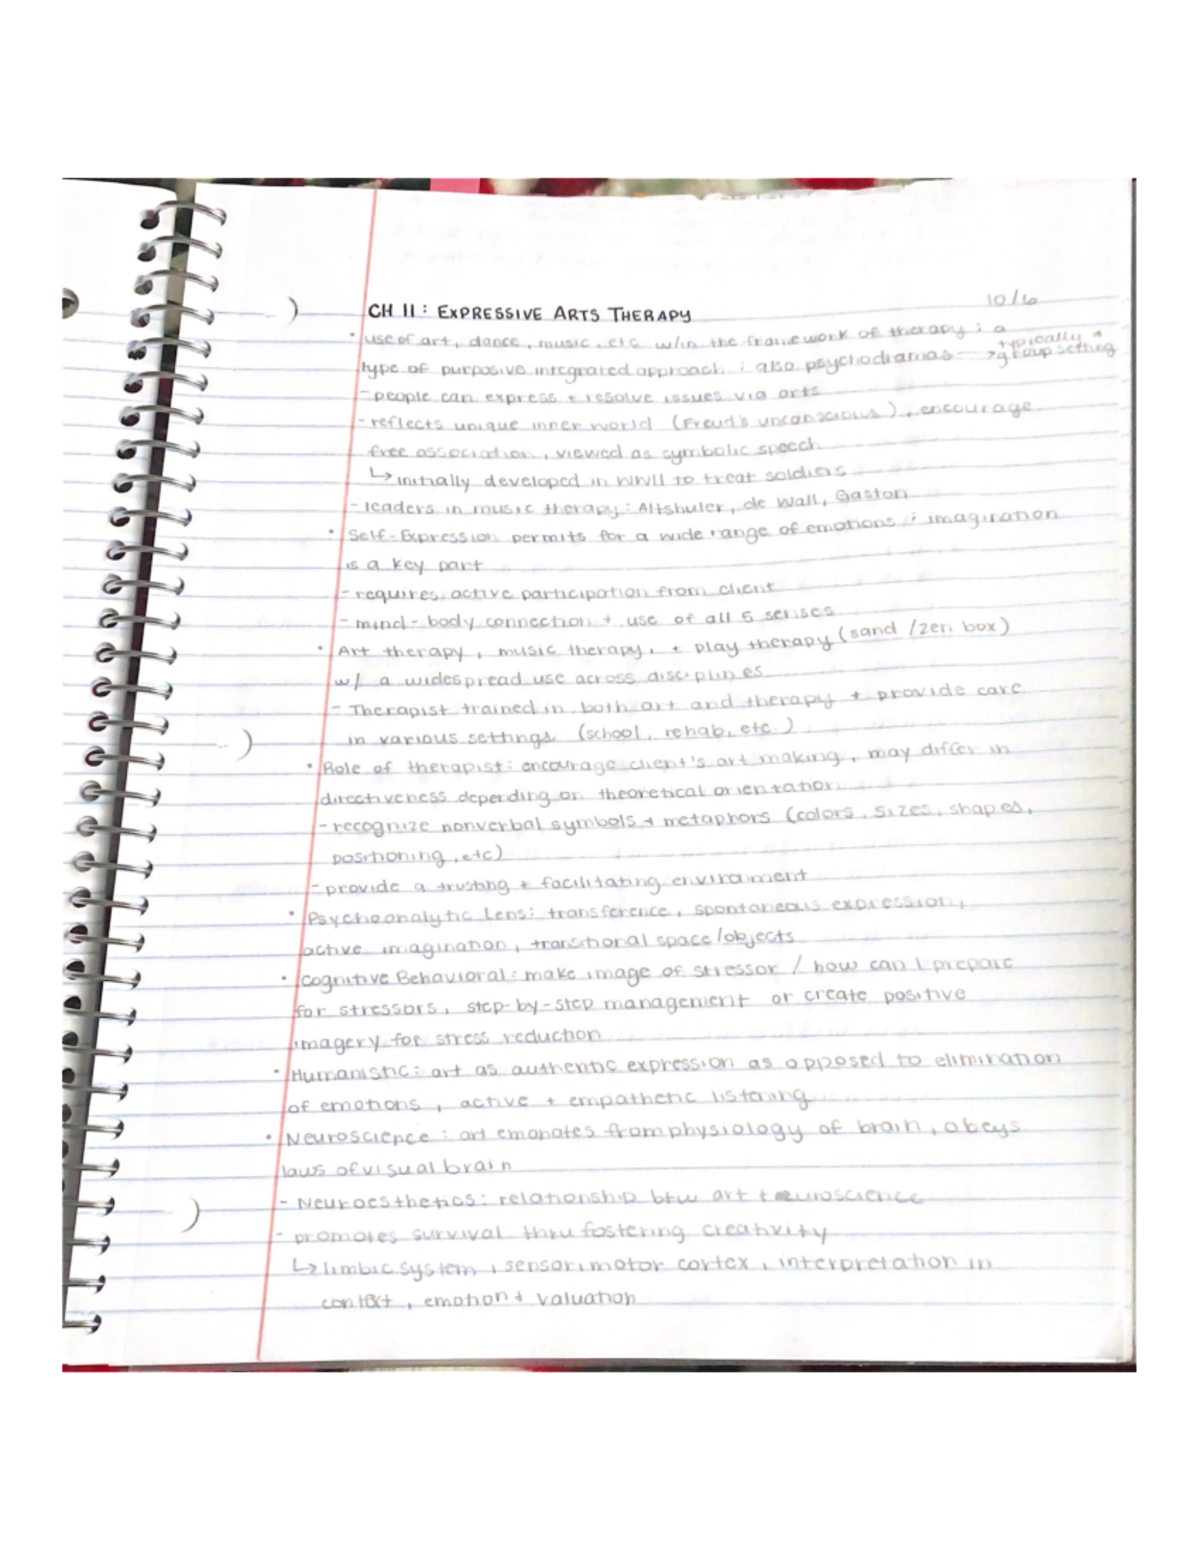 10/6
CH 11: EXPRESSIVE ARTS THERAPY
• use of art, dance, music, etc w/in the framework of therapy ; a
type of purposive integrated approach ; also psychodramas → typically a group setting
- people can express + resolve issues via arts
- reflects unique inner world (Freud's unconscious), encourage
free association, viewed as symbolic speech
↳ initially developed in WWII to treat soldiers
- leaders in music therapy: Altshuler, de Wall, Gaston
• Self-Expression permits for a wide range of emotions ; imagination
is a key part
- requires active participation from client
- mind-body connection + use of all 5 senses
• Art therapy, music therapy, + play therapy (sand/zen box)
w/ a widespread use across disciplines
- Therapist trained in both art and therapy + provide care
in various settings (school, rehab, etc.)
• Role of therapist: encourage client's art making, may differ in
directiveness depending on theoretical orientation
- recognize nonverbal symbols + metaphors (colors, sizes, shapes,
positioning, etc)
- provide a trusting + facilitating environment
• Psychoanalytic Lens: transference, spontaneous expression,
active imagination, transitional space/objects
• Cognitive Behavioral: make image of stressor / how can I prepare
for stressors, step-by-step management or create positive
imagery for stress reduction
• Humanistic: art as authentic expression as opposed to elimination
of emotions, active + empathetic listening
• Neuroscience: art emanates from physiology of brain, obeys
laws of visual brain
- Neuroesthetics: relationship btw art + neuroscience
- promotes survival thru fostering creativity
↳ limbic system, sensorimotor cortex, interpretation in
context, emotion + valuation